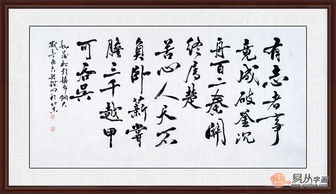 有志者事
竟成破釜沉
舟百二秦關
終屬楚
苦心人天不
負卧薪嘗
膽三千越甲
可吞吳
易从字画